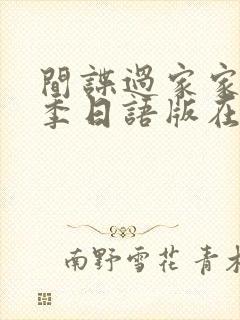 間諜過家家
季日語版在
南野雪花 青木